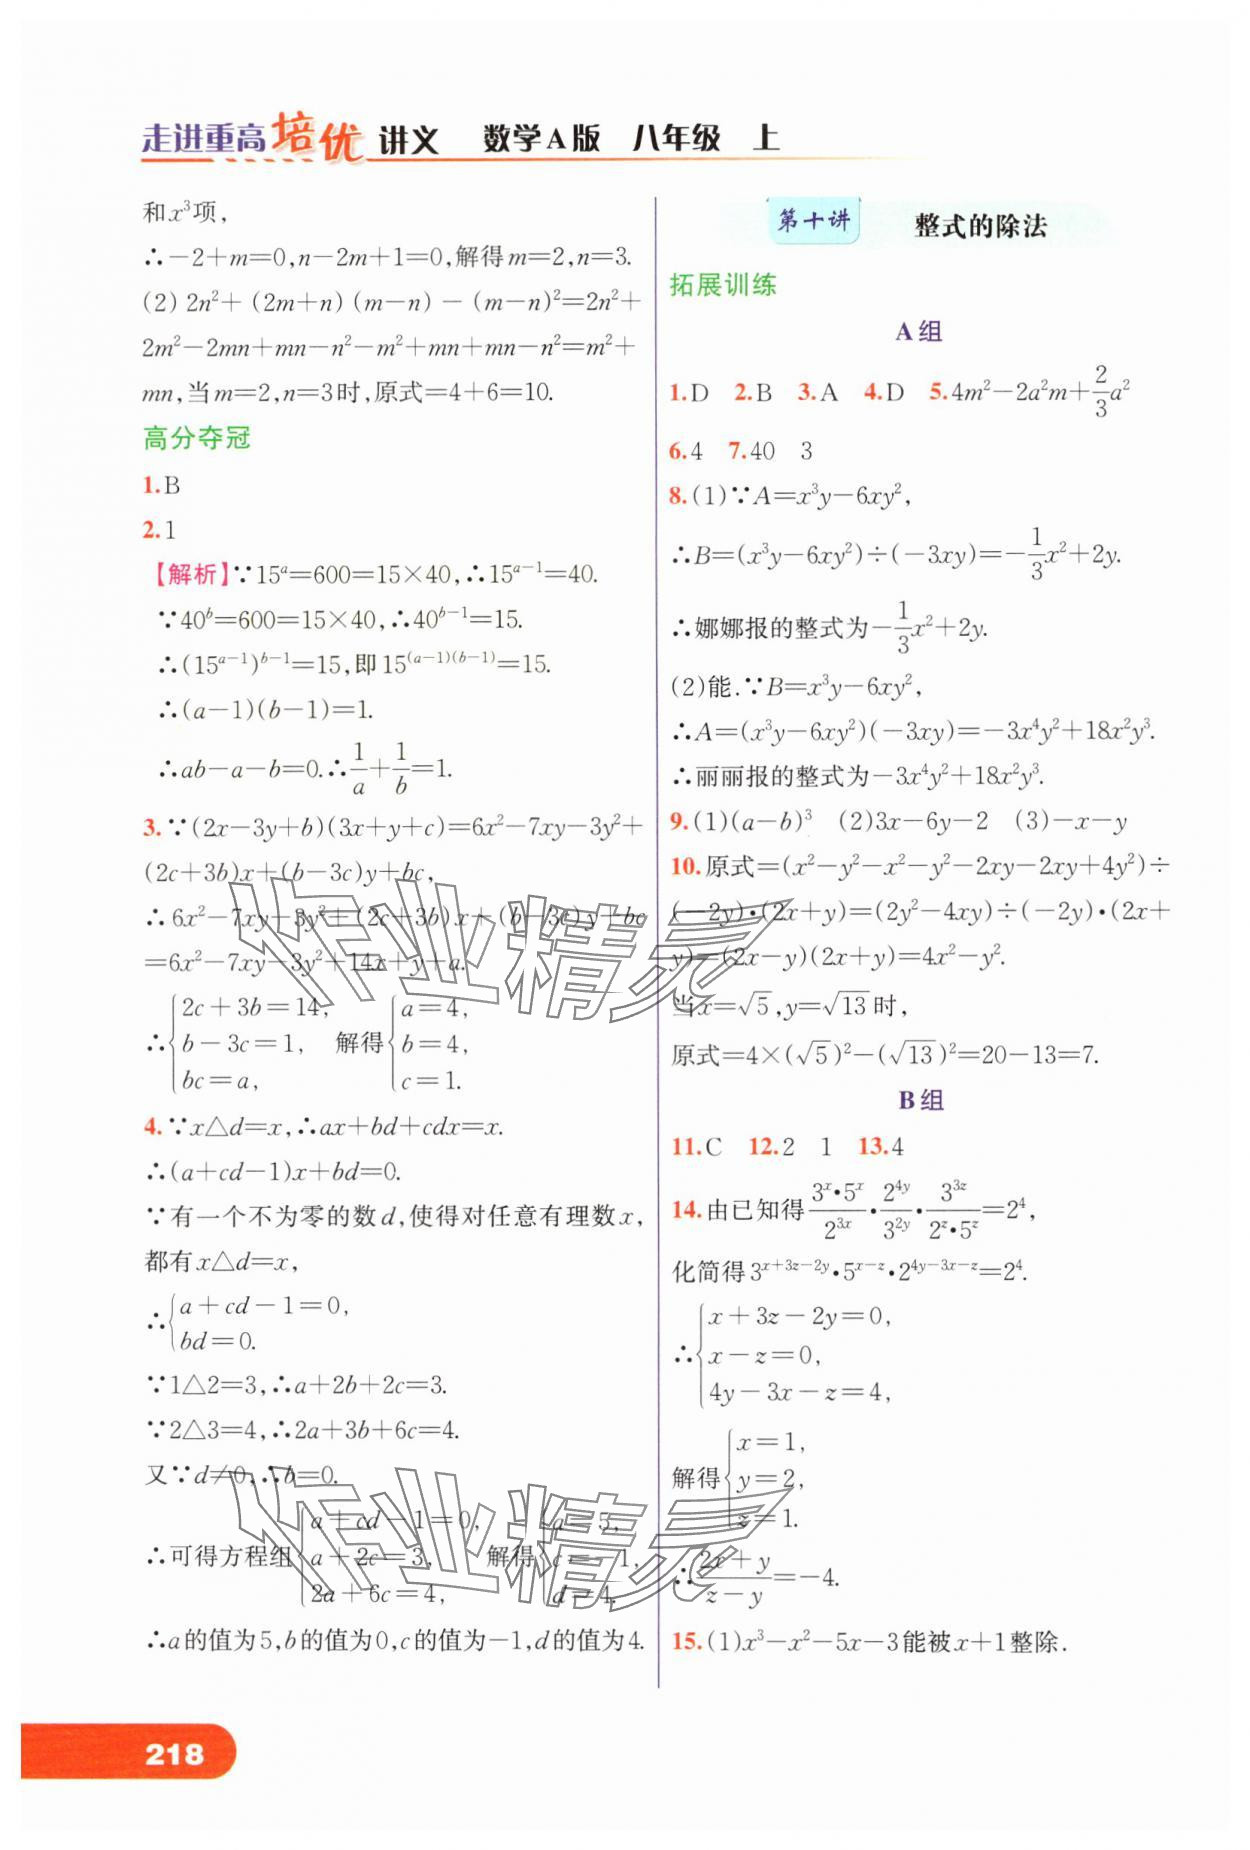 走进重高培优讲义 数学A版 八年级 上
和x³项，
∴−2+m=0,n−2m+1=0,解得m=2,n=3.
(2) 2n²+(2m+n)(m−n)−(m−n)²=2n²+
2m²−2mn+mn−n²−m²+mn+mn−n²=m²+
mn,当m=2,n=3时,原式=4+6=10.
高分夺冠
1.B
2.1
【解析】∵15ᵃ=600=15×40,∴15ᵃ⁻¹=40.
∵40ᵇ=600=15×40,∴40ᵇ⁻¹=15.
∴(15ᵃ⁻¹)ᵇ⁻¹=15,即15⁽ᵃ⁻¹⁾⁽ᵇ⁻¹⁾=15.
∴(a−1)(b−1)=1.
∴ab−a−b=0.∴1/a+1/b=1.
3.∵(2x−3y+b)(3x+y+c)=6x²−7xy−3y²+
(2c+3b)x+(b−3c)y+bc,
∴6x²−7xy−3y²+(2c+3b)x+(b−3c)y+bc
=6x²−7xy−3y²+14x+y+a.
∴{2c+3b=14, b−3c=1, bc=a, 解得{a=4, b=4, c=1.
4.∵x△d=x,∴ax+bd+cdx=x.
∴(a+cd−1)x+bd=0.
∵有一个不为零的数d,使得对任意有理数x,
都有x△d=x,
∴{a+cd−1=0, bd=0.
∵1△2=3,∴a+2b+2c=3.
∵2△3=4,∴2a+3b+6c=4.
又∵d≠0,∴b=0.
∴可得方程组{a+cd−1=0, a+2c=3, 2a+6c=4, 解得{a=5, c=−1, d=4.
∴a的值为5,b的值为0,c的值为−1,d的值为4.
第十讲 整式的除法
拓展训练
A组
1.D 2.B 3.A 4.D 5.4m²−2a²m+2/3a²
6.4 7.40 3
8.(1)∵A=x³y−6xy²,
∴B=(x³y−6xy²)÷(−3xy)=−1/3x²+2y.
∴娜娜报的整式为−1/3x²+2y.
(2)能.∵B=x³y−6xy²,
∴A=(x³y−6xy²)(−3xy)=−3x⁴y²+18x²y³.
∴丽丽报的整式为−3x⁴y²+18x²y³.
9.(1)(a−b)³ (2)3x−6y−2 (3)−x−y
10.原式=(x²−y²−x²−y²−2xy−2xy+4y²)÷
(−2y)•(2x+y)=(2y²−4xy)÷(−2y)•(2x+
y)=(2x−y)(2x+y)=4x²−y².
当x=√5,y=√13时,
原式=4×(√5)²−(√13)²=20−13=7.
B组
11.C 12.2 1 13.4
14.由已知得3ˣ•5ˣ/2³ˣ•2⁴ʸ/3²ʸ•3³ᶻ/2ᶻ•5ᶻ=2⁴,
化简得3ˣ⁺³ᶻ⁻²ʸ•5ˣ⁻ᶻ•2⁴ʸ⁻³ˣ⁻ᶻ=2⁴.
∴{x+3z−2y=0, x−z=0, 4y−3x−z=4,
解得{x=1, y=2, z=1.
∴2x+y/z−y=−4.
15.(1)x³−x²−5x−3能被x+1整除.
218
作业精灵
作业精灵